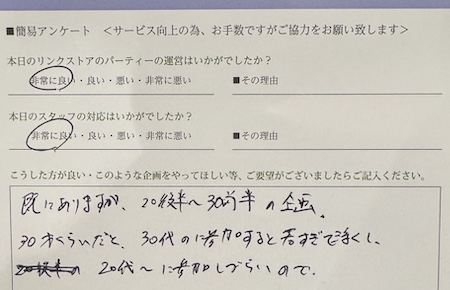 ■簡易アンケート　＜サービス向上の為、お手数ですがご協力をお願い致します＞
本日のリンクストアのパーティーの運営はいかがでしたか？
非常に良い・良い・悪い・非常に悪い　■その理由
本日のスタッフの対応はいかがでしたか？
非常に良い・良い・悪い・非常に悪い　■その理由
こうした方が良い・このような企画をやってほしい等、ご要望がございましたらご記入ください。
既にありますが、20後半～30前半の企画。
30才くらいだと、30代のに参加すると若すぎで浮くし、
20代～に参加しづらいので。